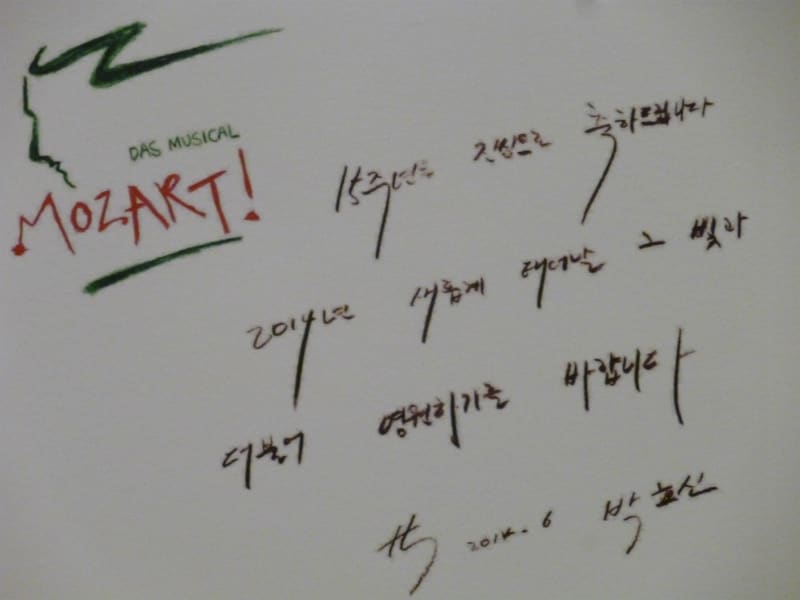 DAS MUSICAL
MOZART!
15주년을 진심으로 축하드립니다
2014년 새롭게 태어날 그 빛과
더불어 영원하기를 바랍니다
2014. 6 박효신